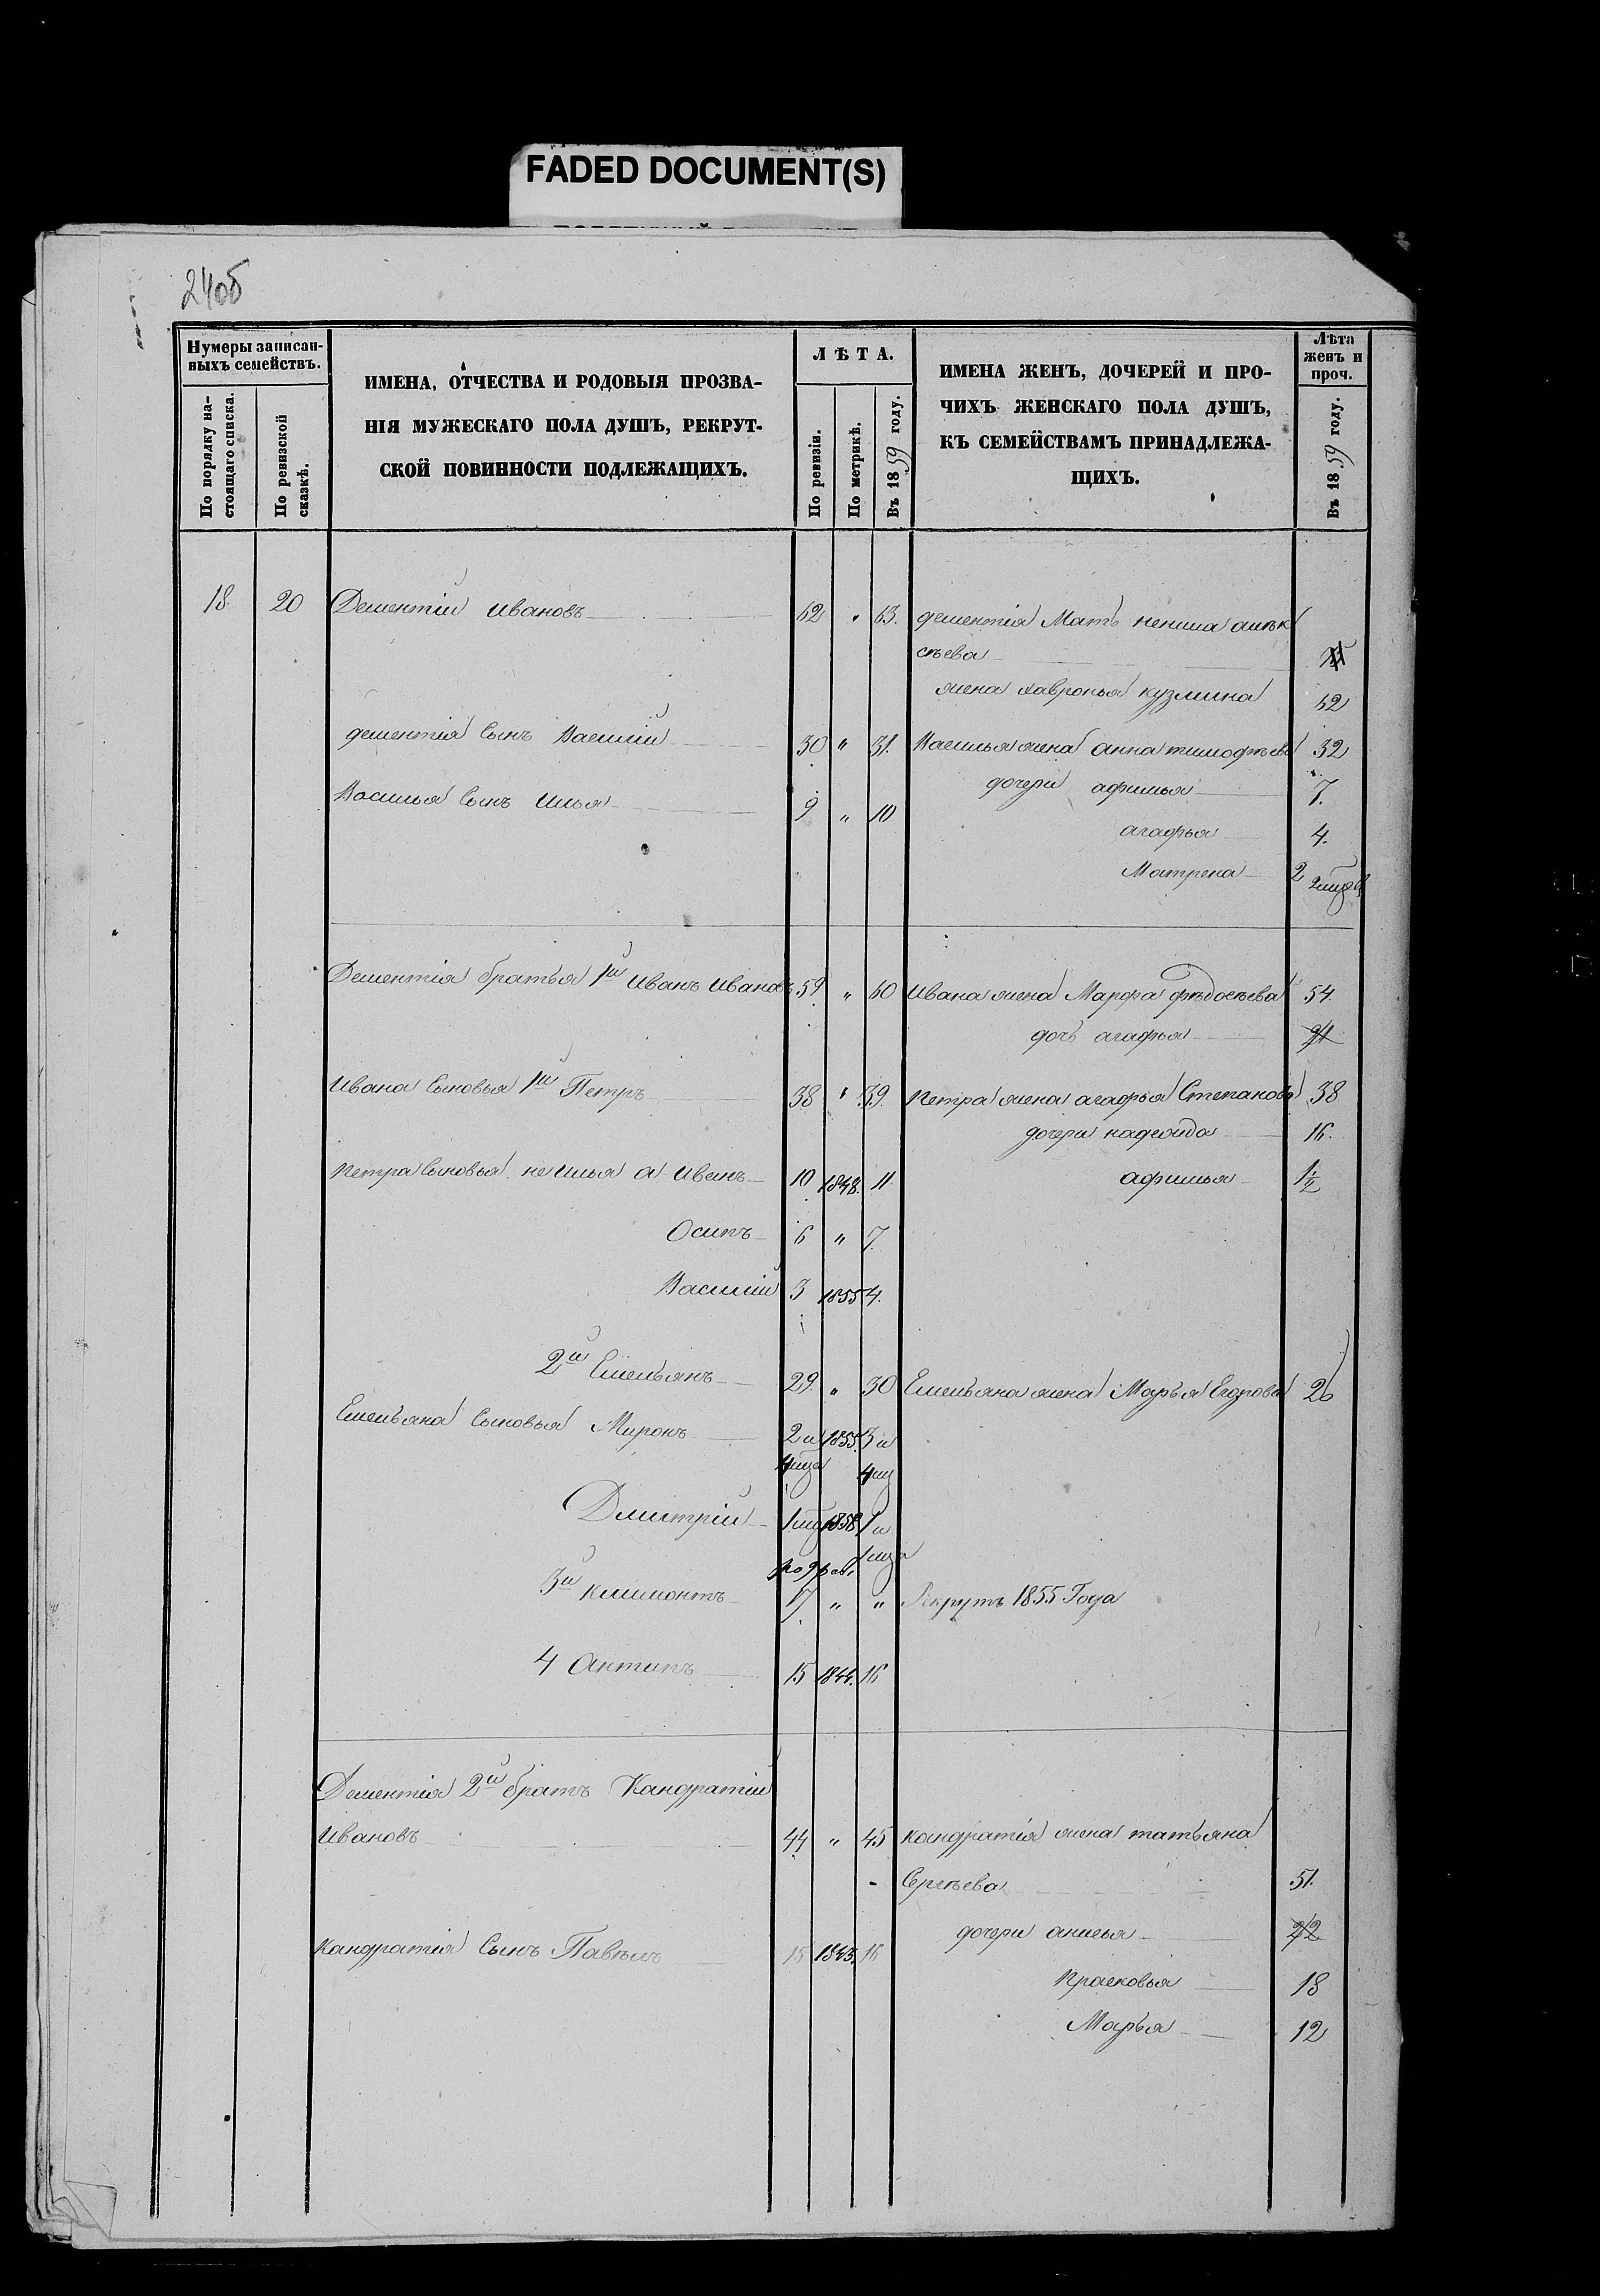 FADED DOCUMENT(S)
24об
Нумеры записан-
ныхъ семействъ.
По порядку на-
стоящаго списка.
По ревизской
сказкѣ.
ИМЕНА, ОТЧЕСТВА И РОДОВЫЯ ПРОЗВА-
НІЯ МУЖЕСКАГО ПОЛА ДУШЪ, РЕКРУТ-
СКОЙ ПОВИННОСТИ ПОДЛЕЖАЩИХЪ.
ЛѢТА.
По ревизіи.
По метрикѣ.
Въ 1859 году.
ИМЕНА ЖЕНЪ, ДОЧЕРЕЙ И ПРО-
ЧИХЪ ЖЕНСКАГО ПОЛА ДУШЪ,
КЪ СЕМЕЙСТВАМЪ ПРИНАДЛЕЖА-
ЩИХЪ.
Лѣта
женъ и
проч.
Въ 1859 году.
18 20 Дементій Ивановъ 62 " 63. дементія Мать ненила алѣк
сѣева
жена хавронья кузмина 62
дементія Сынъ Василій 30 " 31. Василья жена анна тимофѣева 32
дочери афимья 7.
Василья Сынъ Илья 9 " 10
агафья 4.
Матрена 2
Дементія братья 1й Иванъ Ивановъ 59 " 60 Ивана жена Марфа фѣдосѣева 54.
дочь агафья 21
Ивана Сыновья 1й Петръ 38 " 39. Петра жена агафья Степанова 38
дочери надѣжда 16.
Петра Сыновья не Илья а Иванъ 10 1848. 11 афимья 1½
Осипъ 6 " 7.
Василій 3 1855 4.
2й Емельянъ 29 " 30 Емельяна жена Марья Егорова 26
Емельяна Сыновья Миронъ 2 и 1855. 3 и
4 мца 4 мц
Дмитрій 1 мц 1858 1 и
1 мца
3й Климонтъ 17 " " Рекрутъ 1855 Года
4 Антипъ 15 1844. 16
Дементія 2й братъ Кандратій
Ивановъ 44 " 45 кандратія жена татьяна
Сергѣева 51.
дочери анисья 22
Кандратія Сынъ Павѣлъ 15 1843. 16
Прасковья 18
Марья 12